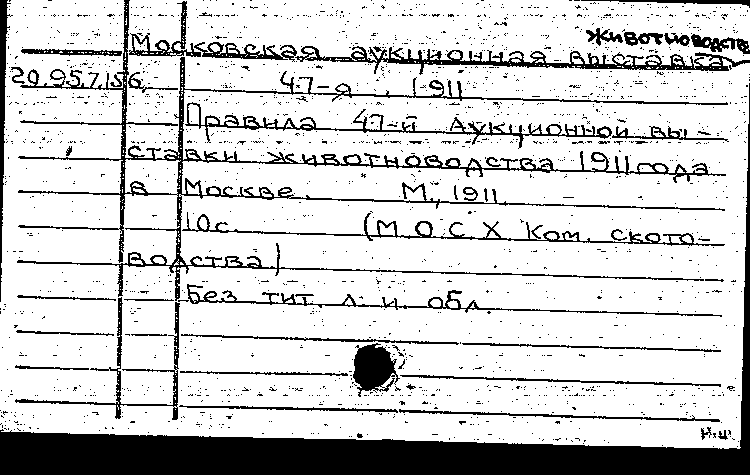 животноводств
Московская аукционная выставка
20.957.156. 47-я. 1911
Правила 47-й Аукционной вы-
ставки животноводства 1911 года
в Москве. М., 1911.
10с. (МОСХ Ком. ското-
водства)
Без тит. л. и обл.